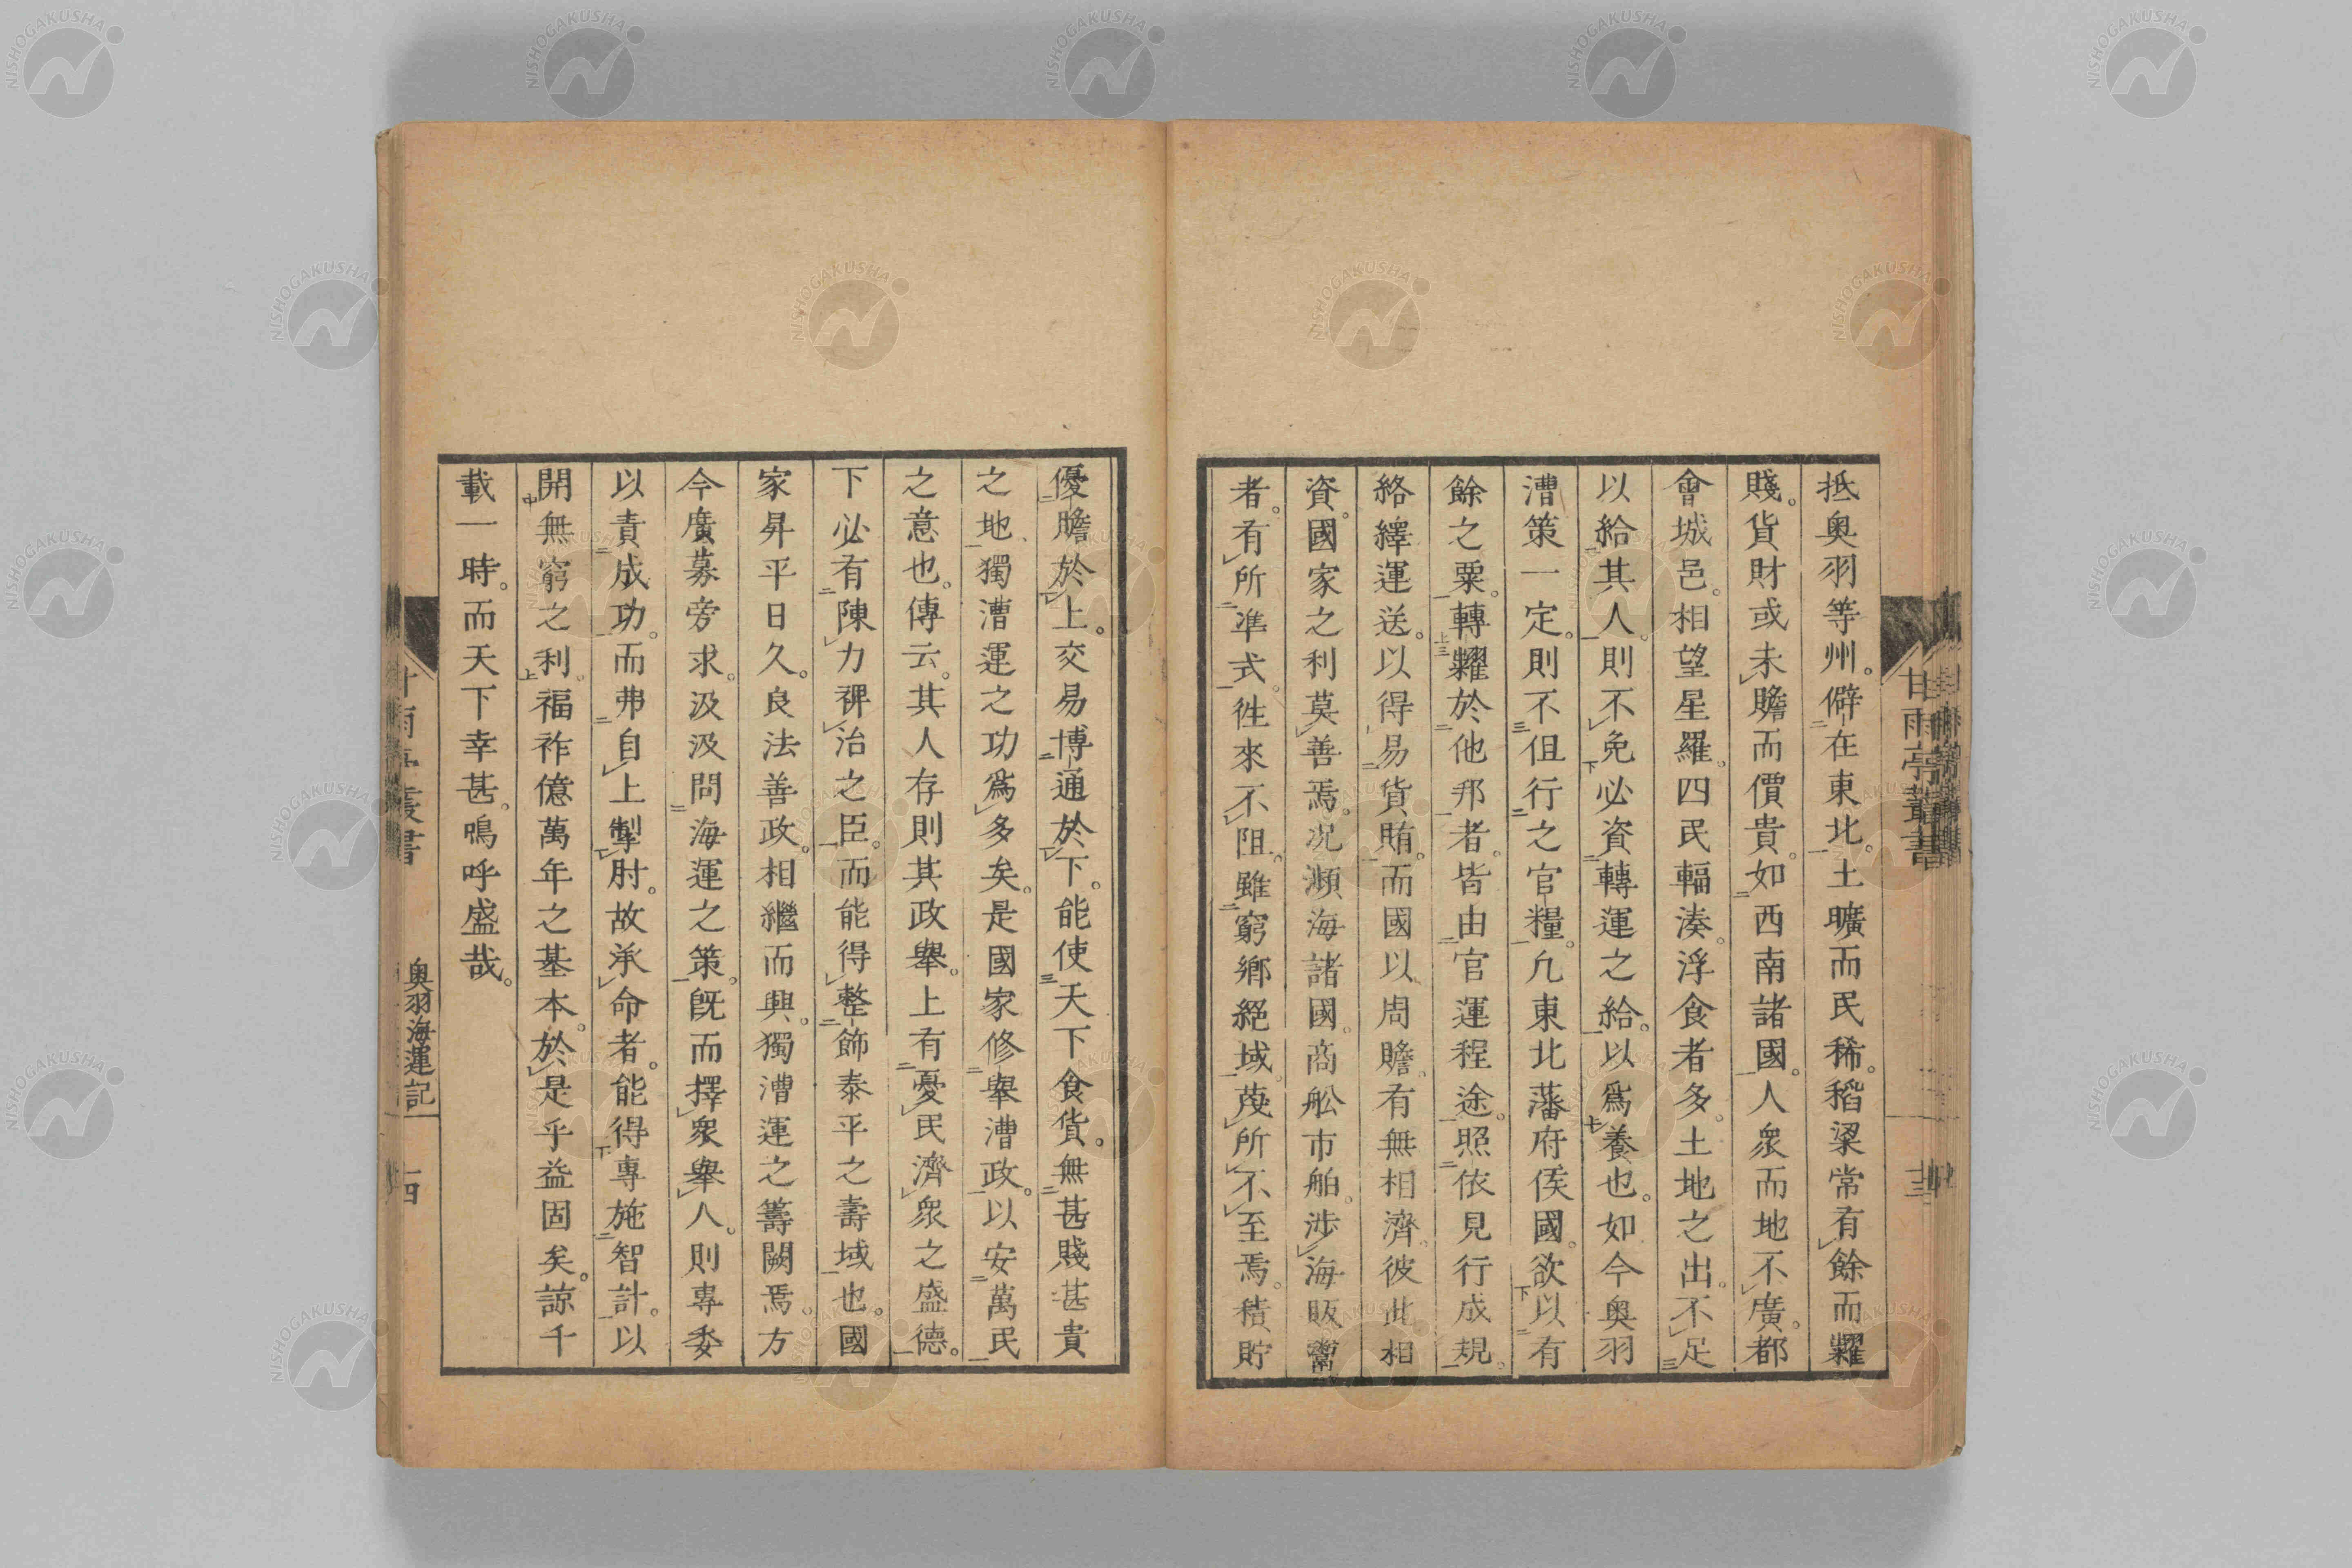 抵奥羽等州。僻在東北。土曠而民稀。稻粱常有餘而糶
賤。貨財或未贍而價貴。如西南諸國。人衆而地不廣。都
會城邑。相望星羅。四民輻湊。浮食者多。土地之出。不足
以給其人。則不免必資轉運之給。以爲養也。如今奥羽
漕策一定。則不但行之官糧。凡東北藩府侯國。欲以有
餘之粟。轉糶於他邦者。皆由官運程途。照依見行成規。
絡繹運送。以得易貨賄。而國以周贍。有無相濟。彼此相
資。國家之利莫善焉。况瀕海諸國。商舩市舶。涉海販鬻
者。有所準式。徃來不阻。雖窮鄉絕域。莫所不至焉。積貯
優贍於上。交易博通於下。能使天下食貨。無甚賤甚貴
之地。獨漕運之功爲多矣。是國家修舉漕政。以安萬民
之意也。傳云。其人存則其政舉。上有憂民濟衆之盛德。
下必有陳力裨治之臣。而能得整飾泰平之壽域也。國
家昇平日久。良法善政。相繼而興。獨漕運之籌闕焉。方
今廣募旁求。汲汲問海運之策。旣而擇衆舉人。則專委
以責成功。而弗自上掣肘。故承命者。能得專施智計。以
開無窮之利。福祚億萬年之基本。於是乎益固矣。諒千
載一時。而天下幸甚。鳴呼盛哉。
甘雨亭叢書
奥羽海運記
十四